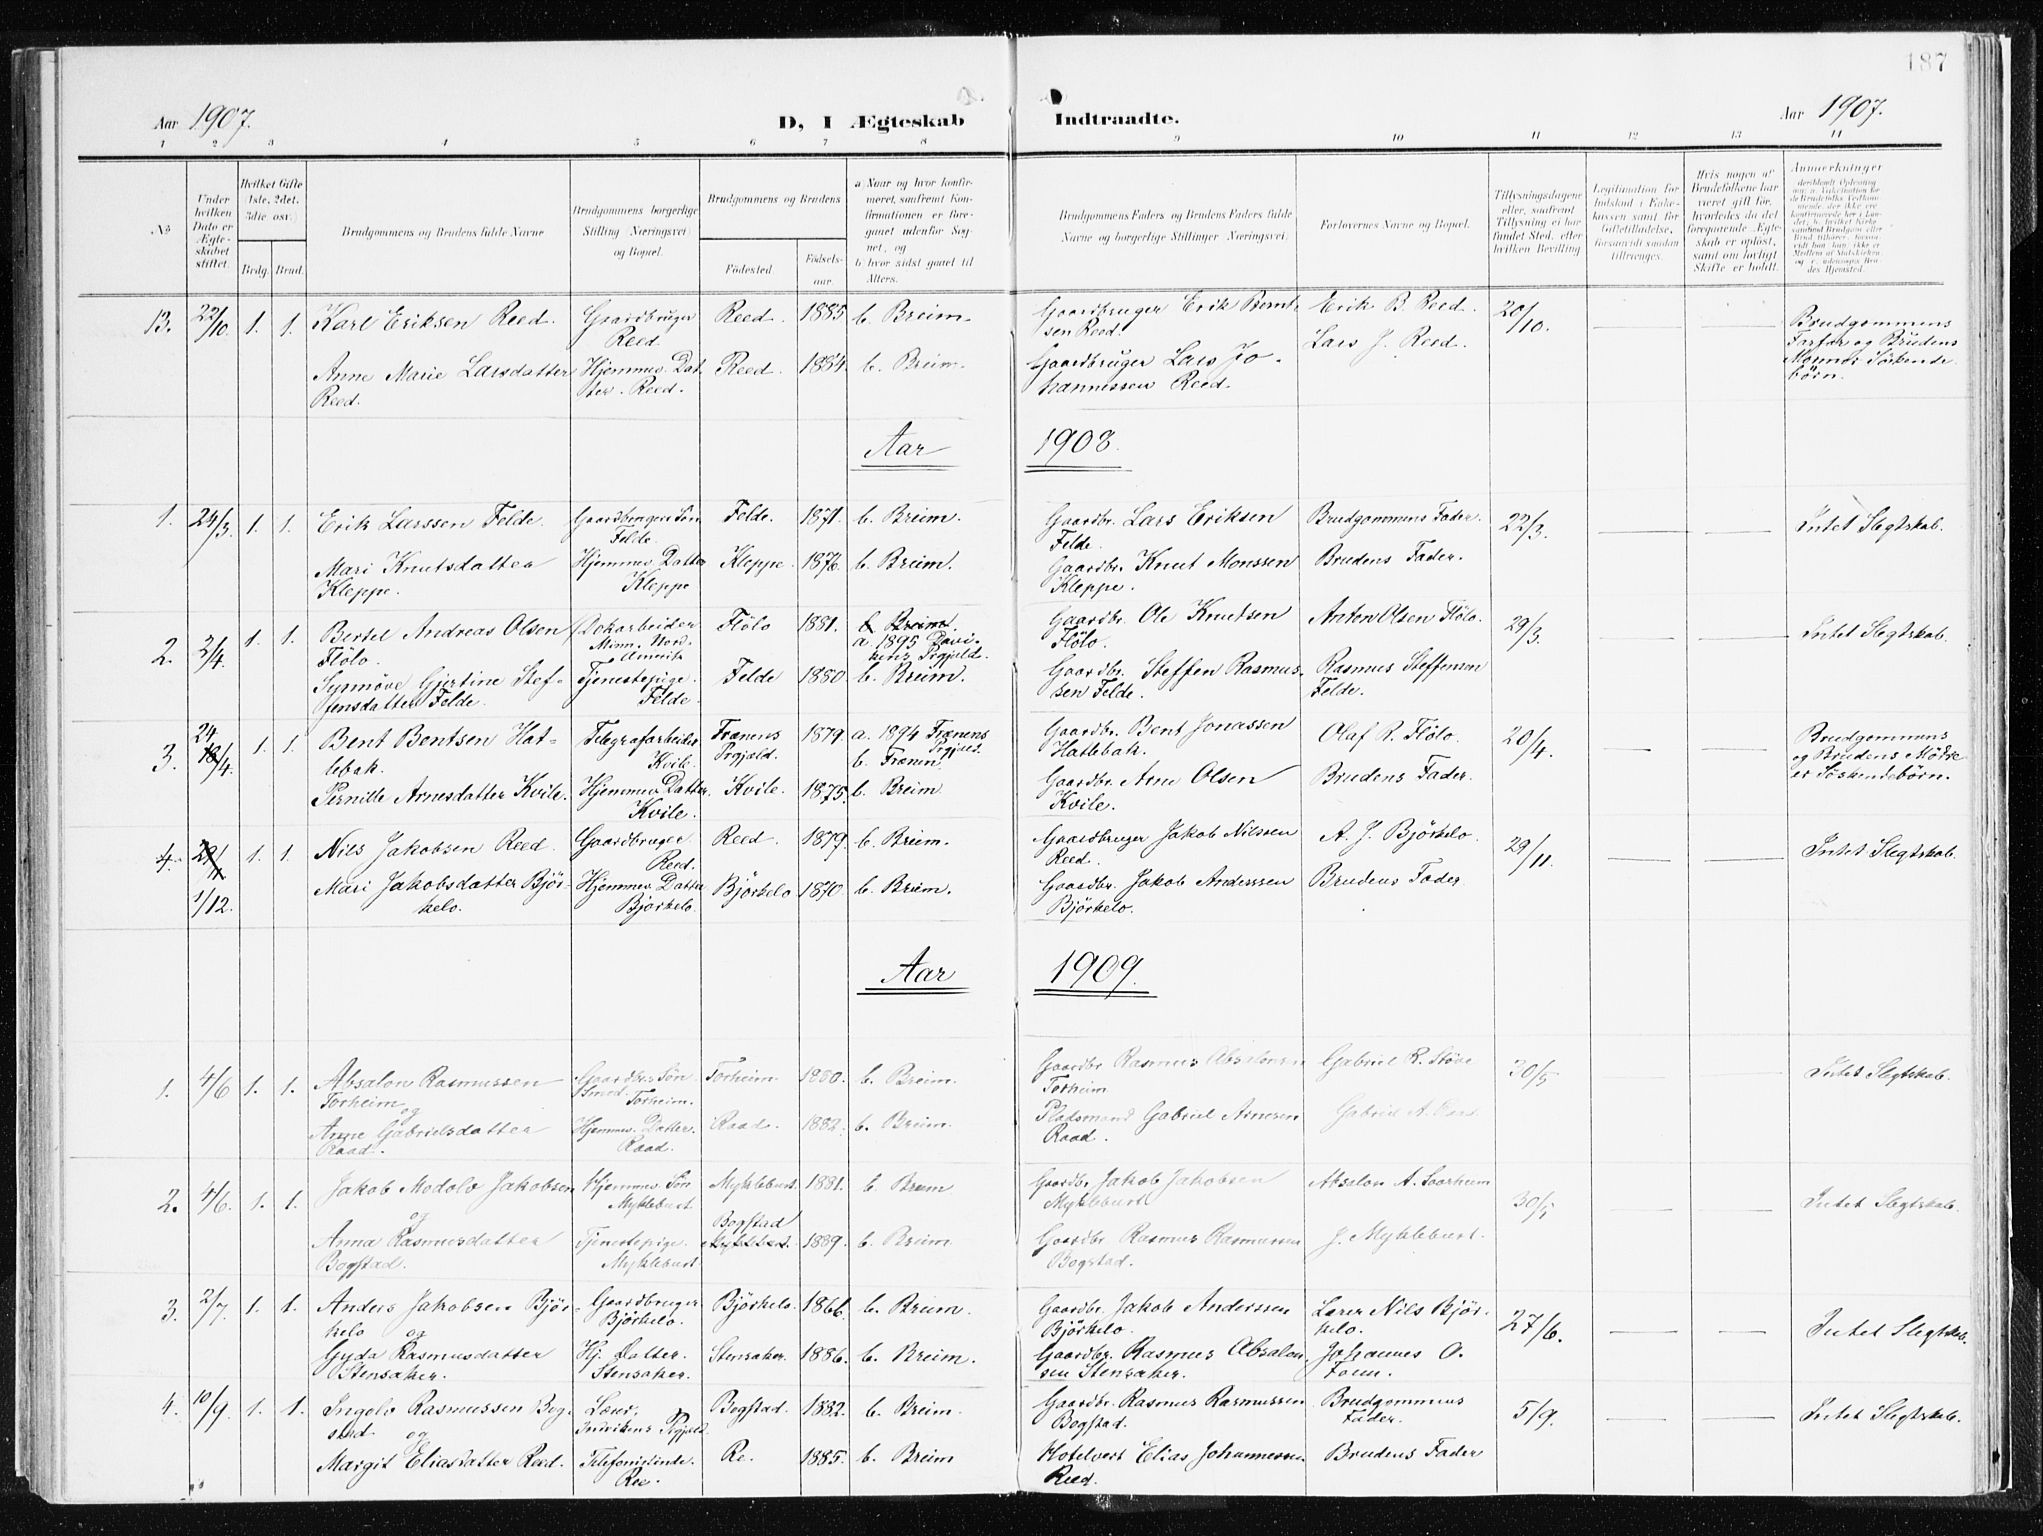 187
Aar 1907.
D, I Ægteskab Indtraadte.
Aar 1907.
1 2 3 4 5 6 7 8 9 10 11 12 13 14
No
Under hvilken Dato er Ægteskabet stiftet.
Hvilket Gifte (1ste, 2det, 3die osv.)
Brdg. Brud.
Brudgommens og Brudens fulde Navne
Brudgommens borgerlige Stilling (Næringsvei) og Bopæl.
Brudgommens og Brudens
Fødested.
Fødselsaar.
a) Naar og hvor konfirmeret, saafremt Konfirmationen er foregaaet udenfor Sognet, og
b) hvor sidst gaaet til Alters.
Brudgommens Faders og Brudens Faders fulde Navne og borgerlige Stillinger (Næringsvei).
Forlovernes Navne og Bopæl.
Tillysningsdagene eller, saafremt Tillysning ei har fundet Sted, efter hvilken Bevilling
Legitimation for Indskud i Enkekassen samt for Giftetilladelse, forsaavidt saadan tiltrænges.
Hvis nogen af Brudefolkene har været gift før, hvorledes da det foregaaende Ægteskab er opløst, samt om lovligt Skifte er holdt.
Anmærkninger
13. 22/10 1. 1. Karl Eriksen Reed. Gaardbruger Reed Reed. 1885 b. Breim. Gaardbruger Erik Berntsen Reed. Erik B. Reed. 20/10. Brudgommens Farfar og Brudens Mormor Sødskendebørn.
Anne Marie Larsdatter Reed. Hjemmev. Datter. Reed. Reed. 1884. b. Breim. Gaardbruger Lars Johannessen Reed. Lars J. Reed.
Aar 1908.
1. 24/3. 1. 1. Erik Larssen Felde. Gaardbrugers Søn Felde. Felde. 1871. b. Breim. Gaardbr. Lars Eriksen Felde. Brudgommens Fader. 22/3. Intet Slegtskab.
Mari Knutsdatter Kleppe. Hjemmev. Datter Kleppe Kleppe. 1876. b. Breim. Gaardbr. Knut Monssen Kleppe. Brudens Fader.
2. 2/4. 1. 1. Bertel Andreas Olsen Flölo. Minn. Nord-Amerika Flölo 1881. b. Breim. a. 1895 Gaardbr. Ole Knudsen Flölo. Anton Olsen Flölo. 29/3. Intet Slegtskab.
Synnöve Gjertine Steffensdatter Felde. Tjenestepige. Felde. Felde 1880. b. Breim. Gaardbr. Steffen Rasmussen Felde. Rasmus Steffensen Felde.
3. 24 18/4. 1. 1. Bent Bentsen Hatlebak. Telegrafarbeider Kvile. Frænens Prgjæld. 1879. a. 1894 Frænens b. Frænen. Gaardbr. Bent Jonassen Hatlebak. Olaf R. Flölo. 20/4. Brudgommens og Brudens Mödre er Söskendebörn.
Pernille Arnesdatter Kvile. Hjemmev. Datter. Kvile. Kvile. 1875. b. Breim Gaardbr. Arne Olsen Kvile. Brudens Fader.
4. 29/11 1/12. 1. 1. Nils Jakobsen Reed. Gaardbruger Reed. Reed. 1879. b. Breim. Gaardbruger Jakob Nilssen Reed. A. J. Björkelo. 29/11. Intet Slegtskab.
Mari Jakobsdatter Björkelo. Hjemmev. Datter Björkelo. Björkelo 1870 b. Breim. Gaardbr. Jakob Anderssen Björkelo. Brudens Fader.
Aar 1909.
1. 4/6 1. 1. Absalon Rasmussen Torheim og Gaardbr. Søn Smed. Torheim. Torheim 1880. b. Breim. Gaardbr Rasmus Absalonsen Torheim Gabriel R. Støve 30/5 Intet Slegtskab.
Anne Gabrielsdatter Raad. Hjemmev. Datter. Raad. Raad. 1882. b. Breim. Pladsmand Gabriel Arnesen Raad. Gabriel A.
2. 4/6. 1. 1. Jakob Modolv Jakobsen og Hjemmev. Søn Myklebust Myklebust. 1881. b. Breim Gaardbr. Jakob Jakobsen Myklebust Absalon A. Soorheim 30/5 Intet Slegtskab.
Anna Rasmusdatter Bogstad. Tjenestepige. Myklebust Bogstad Myklebust. 1889. b. Breim Gaardbr Rasmus Rasmussen Bogstad. J. Myklebust.
3. 2/7. 1. 1. Anders Jakobsen Björkelo og Gaardbruger Björkelo. Björkelo. 1866. b. Breim. Gaardbr. Jakob Anderssen Björkelo. Lærer Nils Björkelo. 27/6. Intet Slegtskab.
Gyda Rasmusdatter Stensaker. Hj. Datter. Stensaker. Stensaker. 1886. b. Breim. Gaardbr. Rasmus Absalonsen Stensaker. Johannes O.
4. 10/9. 1. 1. Ingolv Rasmussen Bogstad og Lærer, Indvikens Prgjæld. Bogstad. 1882. b. Breim. Gaardbr. Rasmus Rasmussen Bogstad. Brudgommens Fader. 5/9. Intet Slegtskab.
Margit Eliasdatter Reed. Telefonistinde. Ree. Re. 1885. b. Breim Hotelvert Elias Johannessen Reed. Brudens Fader